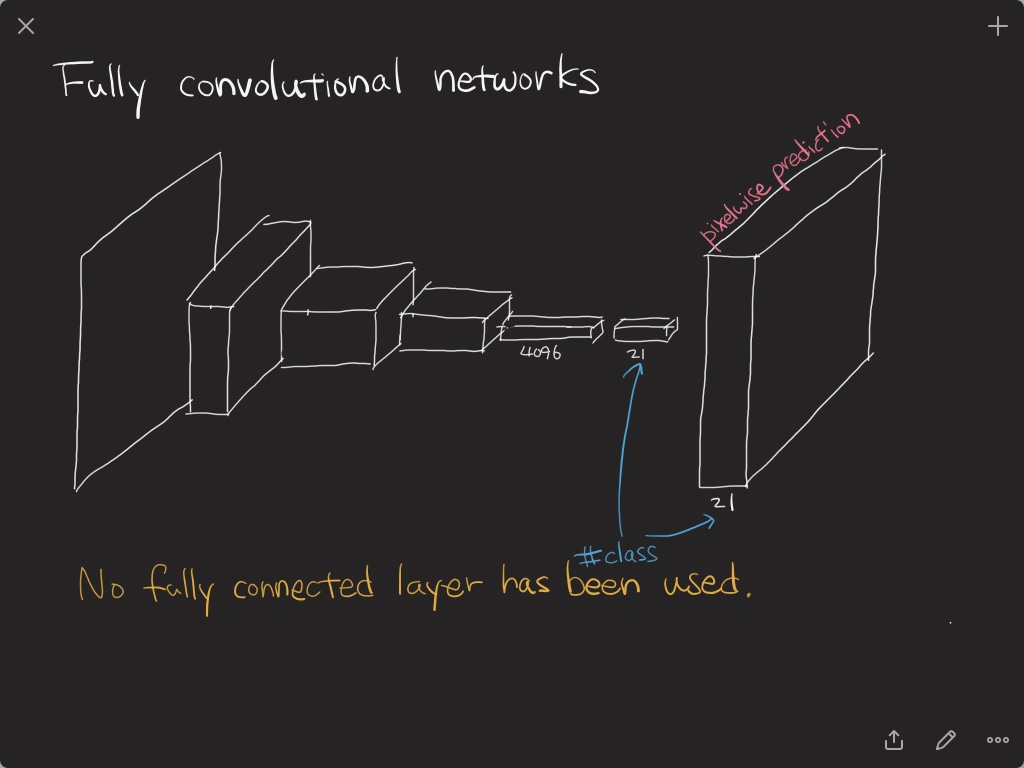 Fully convolutional networks
pixelwise prediction
4096
21
21
#class
No fully connected layer has been used.